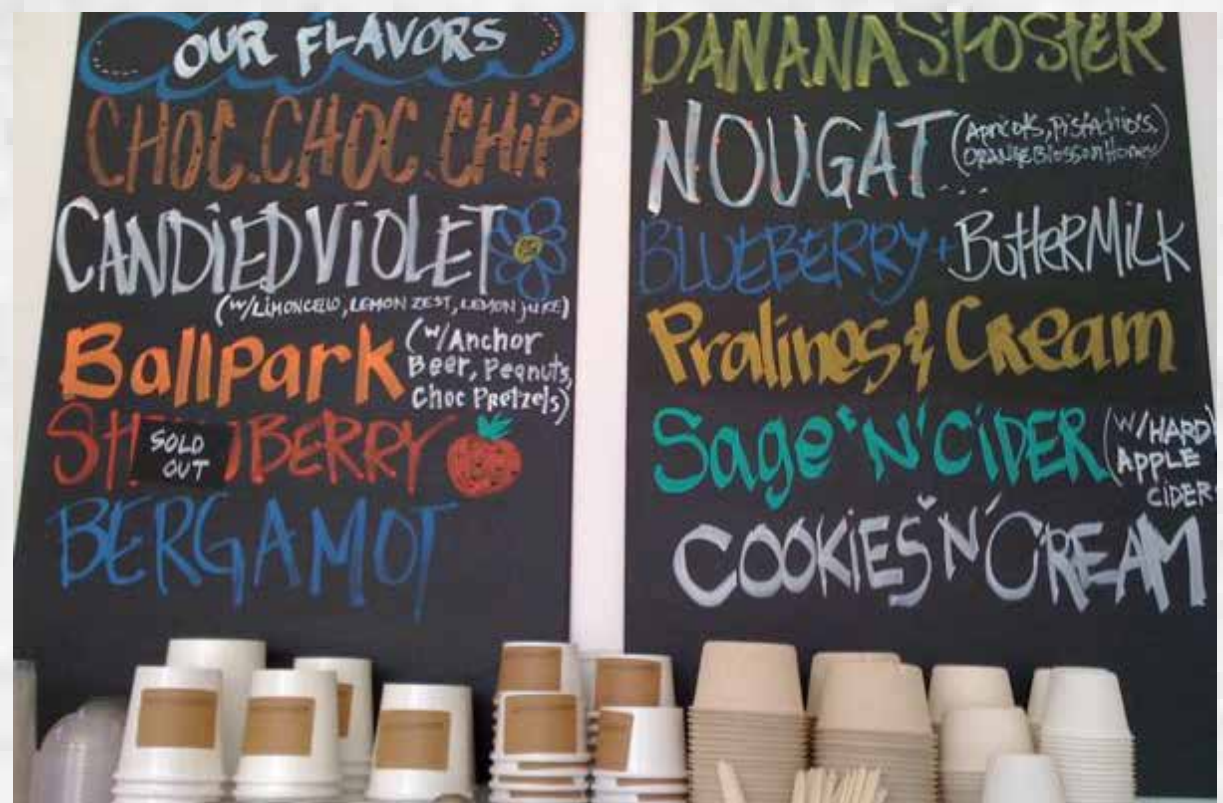 OUR FLAVORS
CHOC. CHOC. CHIP
CANDIED VIOLET
(W/LIMONCELLO, LEMON ZEST, LEMON JUICE)
Ballpark (w/Anchor
Beer, Peanuts,
Choc Pretzels)
BERRY
SOLD
OUT
BERGAMOT
BANANAS FOSTER
NOUGAT... (Apricots, Pistachios,
ORANGE Blossom Honey)
BLUEBERRY + ButterMilK
Pralines & Cream
Sage 'N' CiDER (W/HARD
APPLE
CiDER
COOKiES 'N' CREAM